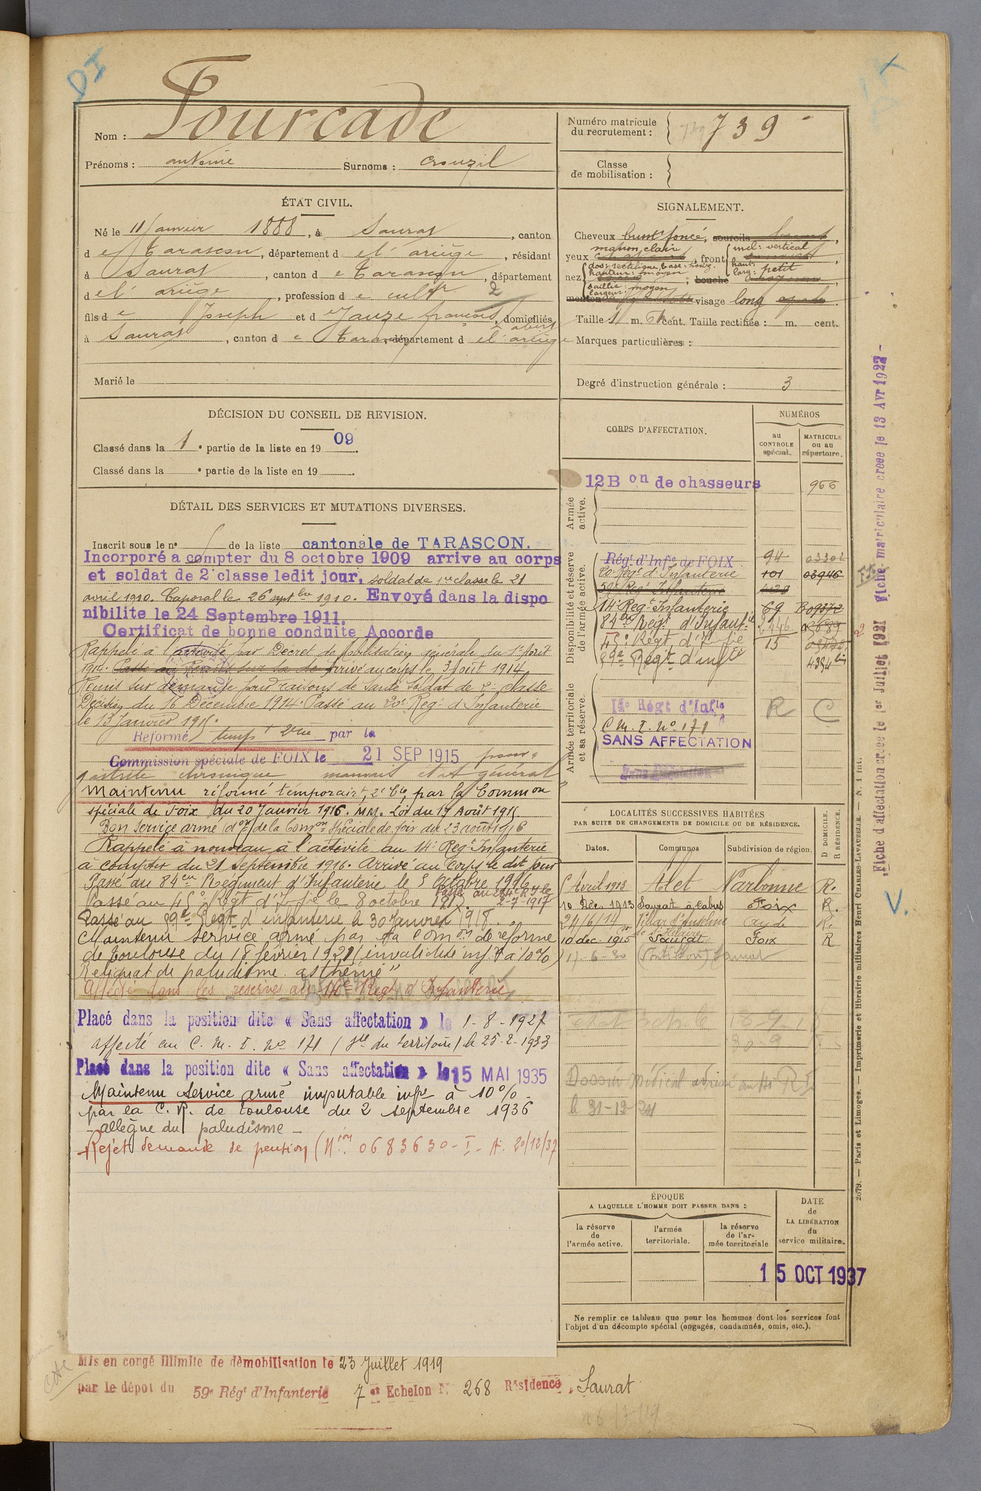 DI
Nom : Fourcade
Prénoms : antoine Surnoms : Crouzil
ÉTAT CIVIL.
Né le 11 janvier 1888, à Saurat, canton
d e Tarascon, département d e l'ariège, résidant
à Saurat, canton d e Tarascon, département
d e l' ariège, profession d e cultr 2
fils d e Joseph et d e Jauze françoise, domiciliés
à Saurat, canton d e Tarascon, département d e l'ariège
Marié le
DÉCISION DU CONSEIL DE REVISION.
Classé dans la 1e partie de la liste en 1909.
Classé dans la e partie de la liste en 19 .
DÉTAIL DES SERVICES ET MUTATIONS DIVERSES.
Inscrit sous le no de la liste cantonale de TARASCON.
Incorporé a compter du 8 octobre 1909 arrive au corps
et soldat de 2e classe ledit jour, soldat de 1re classe le 21
avril 1910. Caporal le 26 sept bre 1910. Envoyé dans la dispo
nibilite le 24 Septembre 1911.
Certificat de bonne conduite Accorde
Rappelé à l'activité par Decret de mobilisation générale du 1er août
1914. arrivé au corps le 3 août 1914
Remis sur demande pour raisons de santé soldat de 2e classe
Décision du 16 Décembre 1914. Passé au 20e Régt d'Infanterie
le 13 janvier 1915.
Reformé temp 2me par la
Commission spéciale de FOIX le 21 SEP 1915 pour
gastrite chronique mauvais état général
Maintenu réformé temporaire, 2e Cie par la Common
spéciale de Foix du 20 Janvier 1916. Loi du 17 Août 1915
Bon service armé don de la Comon Spéciale de foix du 23 août 1916
Rappelé à nouveau à l'activité au 14e Reg Infanterie
à compter du 21 septembre 1916. Arrivé au Corps le dit jour
Passé au 84e Régiment d'Infanterie le 5 Octobre 1916
2-7-1917
Passé au 45e Régt d'Infie le 8 octobre 1917
Passé au 59e Regt d'infanterie le 30 janvier 1918
Maintenu service armé par la Comon de réforme
de toulouse du 18 février 1921 (invalidité infre à 10%)
Reliquat de paludisme. asthénie"
Affecté dans les réserves au 14e Régt d'Infanterie
Placé dans la position dite « Sans affectation » le 1-8-1927
affecté au C. M. I. no 171 (Sel du territoire) le 25-2-1933
Placé dans la position dite « Sans affectation » le 15 MAI 1935
Maintenu service armé imputable infr à 10%
par la C. R. de Toulouse du 2 septembre 1936
- allègue du paludisme -
Rejet demande de pension (No 0683630-I- A. 20/12/37
Mis en congé illimité de démobilisation le 23 juillet 1919
par le dépot du 59e Régt d'Infanterie 7 e Echelon No 268 Résidence Saurat
Numéro matricule
du recrutement : 739
Classe
de mobilisation :
SIGNALEMENT.
Cheveux bruns foncé, sourcils
yeux marron clair, front incl: vertical
haut:
larg: petit
nez dos: rectiligne, base: horiz.
hauteur: moyen
saillie: moyen
largeur: ; bouche
menton visage long
Taille 1 m. 61 cent. Taille rectifiée : m. cent.
Marques particulières :
Degré d'instruction générale : 3
CORPS D'AFFECTATION.
NUMÉROS
au
CONTROLE
spécial.
MATRICULE
ou au
répertoire.
Armée
active.
12 Bon de chasseurs 966
Disponibilité et réserve
de l'armée active.
Régt d'Infie de FOIX 94 03302
20 Régt d'Infanterie 101 08946
59e Régt Infanterie
14e Régt Infanterie 69
84e Régt d'Infantie
45e Régt d'Infie 15
59e Régt d'infie 4394 bis
Armée territoriale
et sa réserve.
14e Régt d'Infie R C
C. M. I. No 171
SANS AFFECTATION
Sans affectation
LOCALITÉS SUCCESSIVES HABITÉES
PAR SUITE DE CHANGEMENTS DE DOMICILE OU DE RÉSIDENCE.
Dates. Communes Subdivision de région. D DOMICILE. R RÉSIDENCE.
5 Avril 1912 Alet Narbonne R.
10 Déc. 1913 Saurat Foix R.
24/6/14 Villar d'Anselme aude R.
10 dec 1915 Saurat Foix R
17-6-30 Saurat
Dossier médical
le 31-12-24
ÉPOQUE
A LAQUELLE L'HOMME DOIT PASSER DANS :
la réserve
de
l'armée active.
l'armée
territoriale.
la réserve
de l'ar-
mée territoriale
DATE
de
LA LIBÉRATION
du
service militaire.
15 OCT 1937
Ne remplir ce tableau que pour les hommes dont les services font
l'objet d'un décompte spécial (engagés, condamnés, omis, etc.).
Fiche d'affectation créée le 1er Juillet 1921 Fiche matriculaire creee le 13 Avr 1927 -
V.
2079. — Paris et Limoges. — Imprimerie et librairie militaires Henri CHARLES-LAVAUZELLE. — N. 1 int.